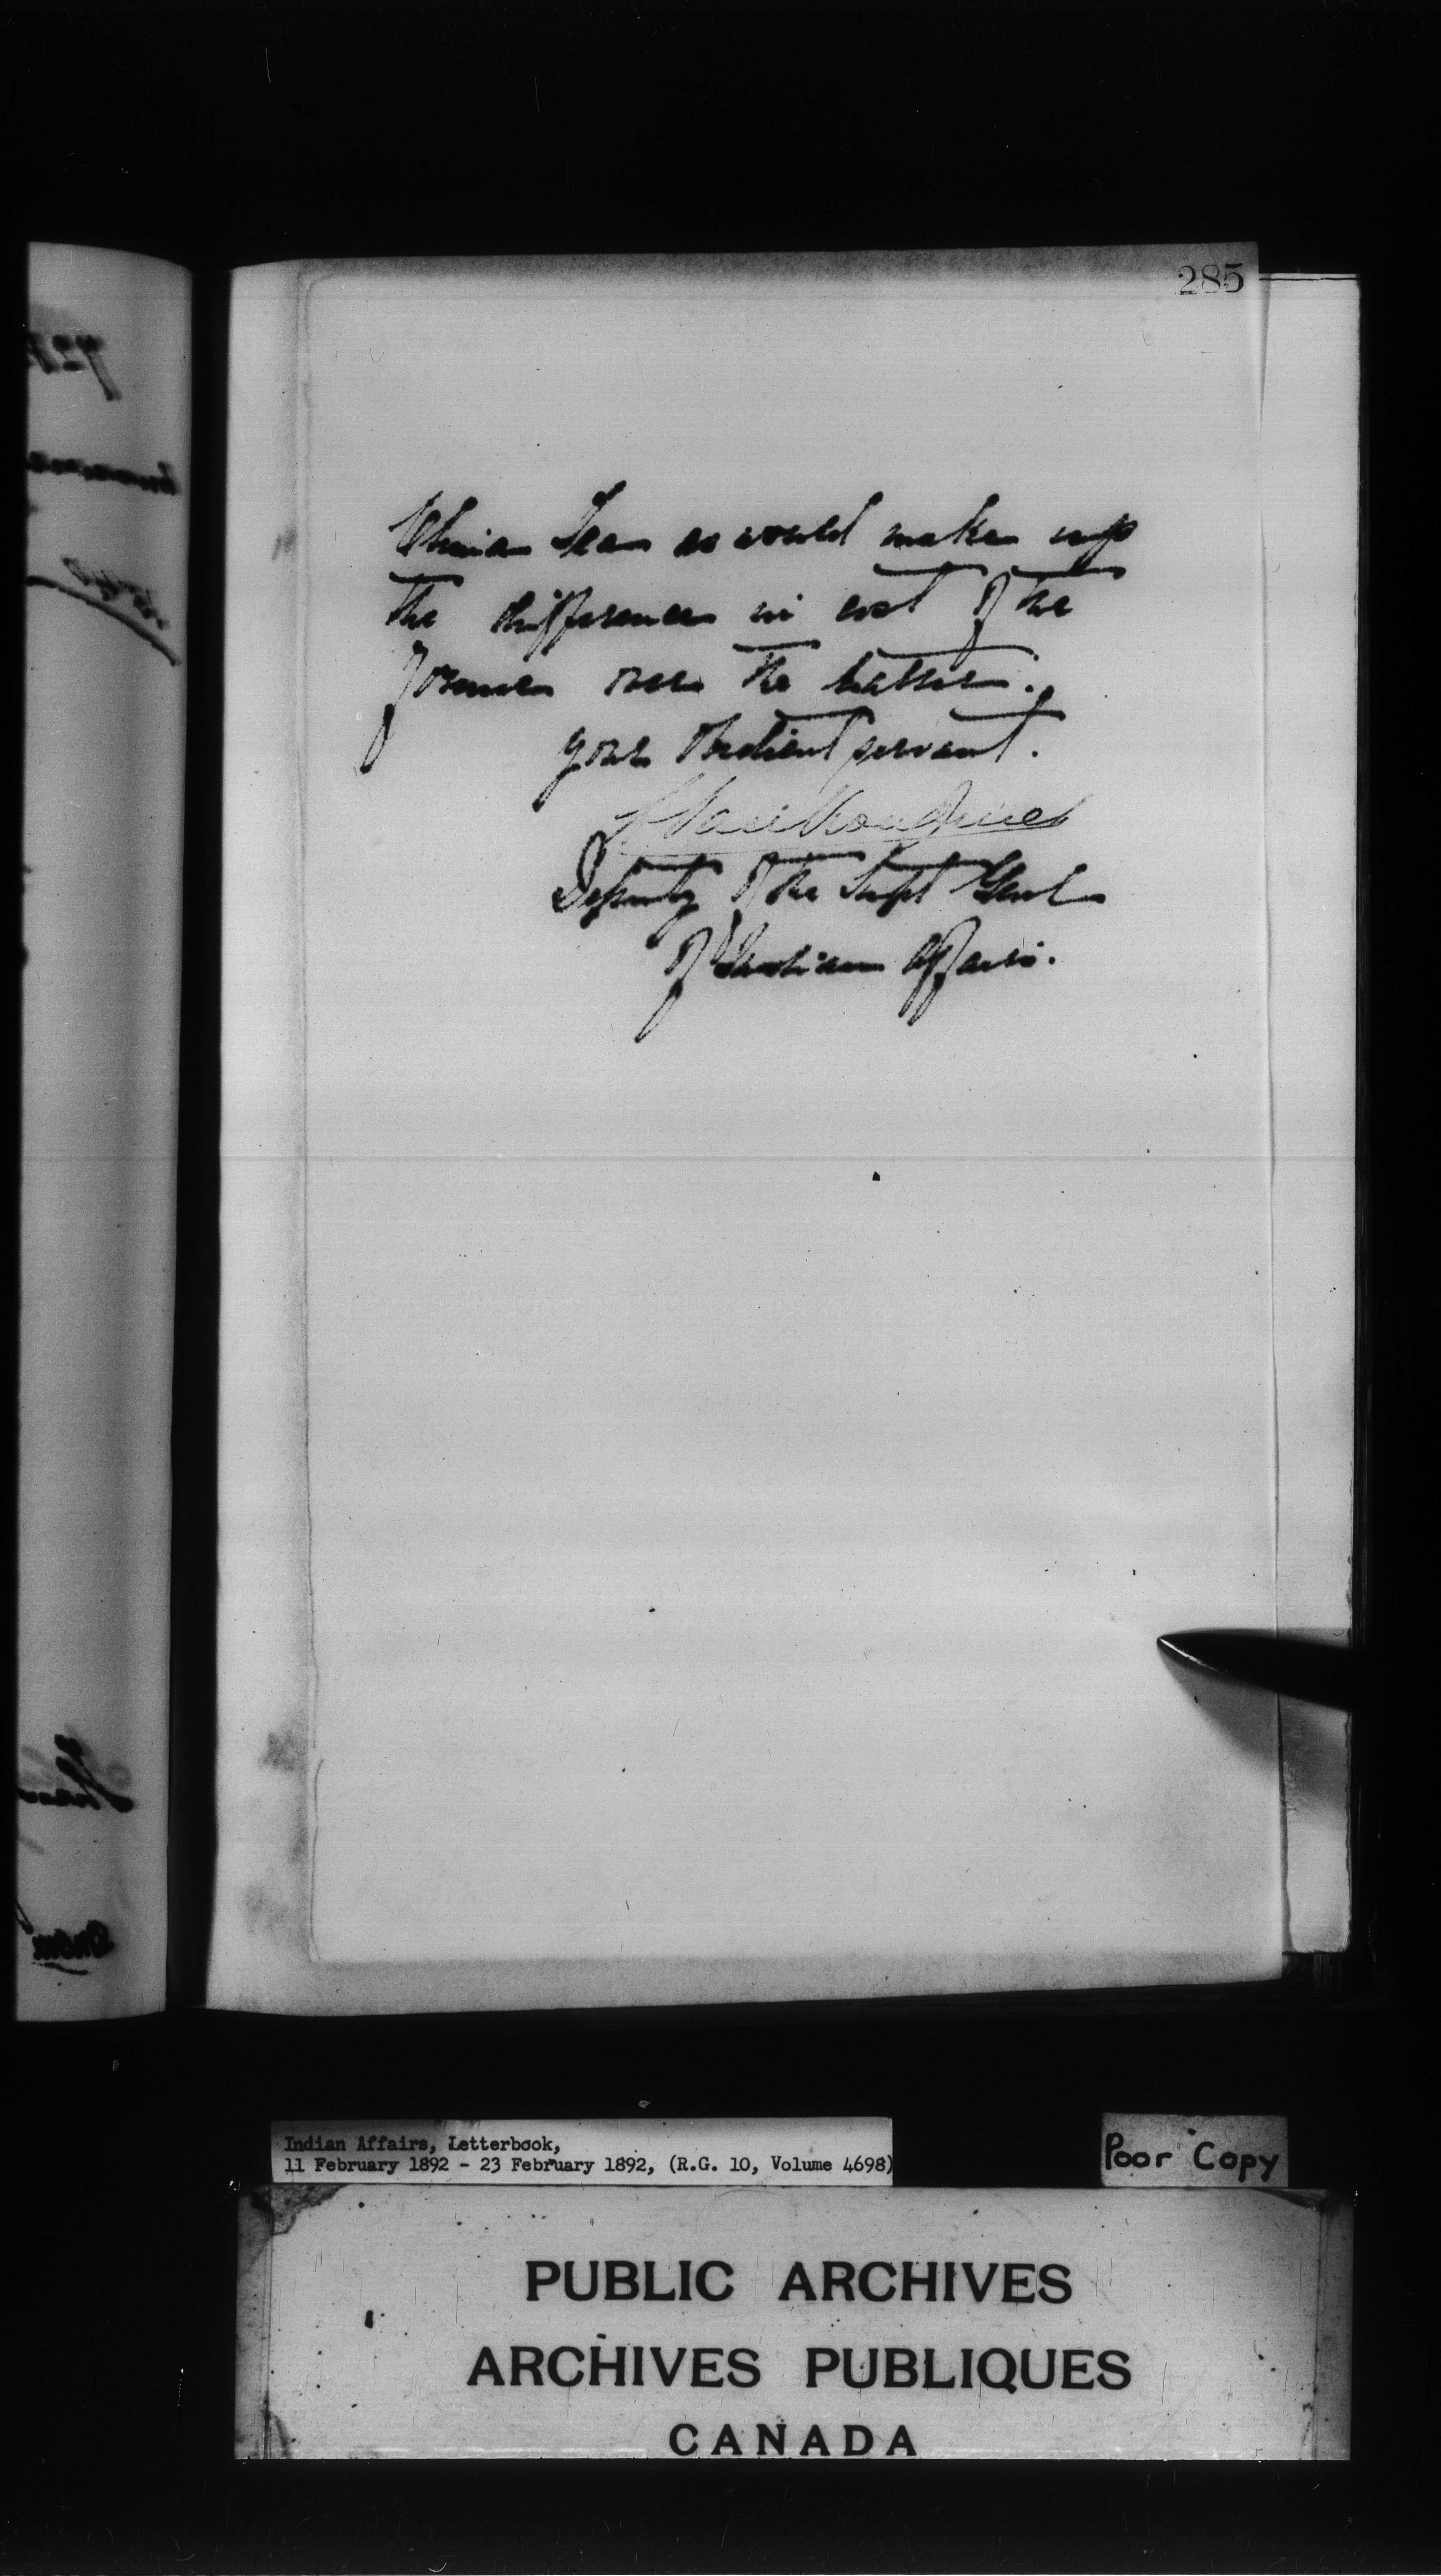 285
China Tea as would make up
the difference in cost of the
former over the latter.
your obedient servant.
L Vankoughnet
Deputy of the Supt Genl
of Indian Affairs.
Indian Affairs, Letterbook,
11 February 1892 - 23 February 1892, (R.G. 10, Volume 4698)
Poor Copy
PUBLIC ARCHIVES
ARCHIVES PUBLIQUES
CANADA